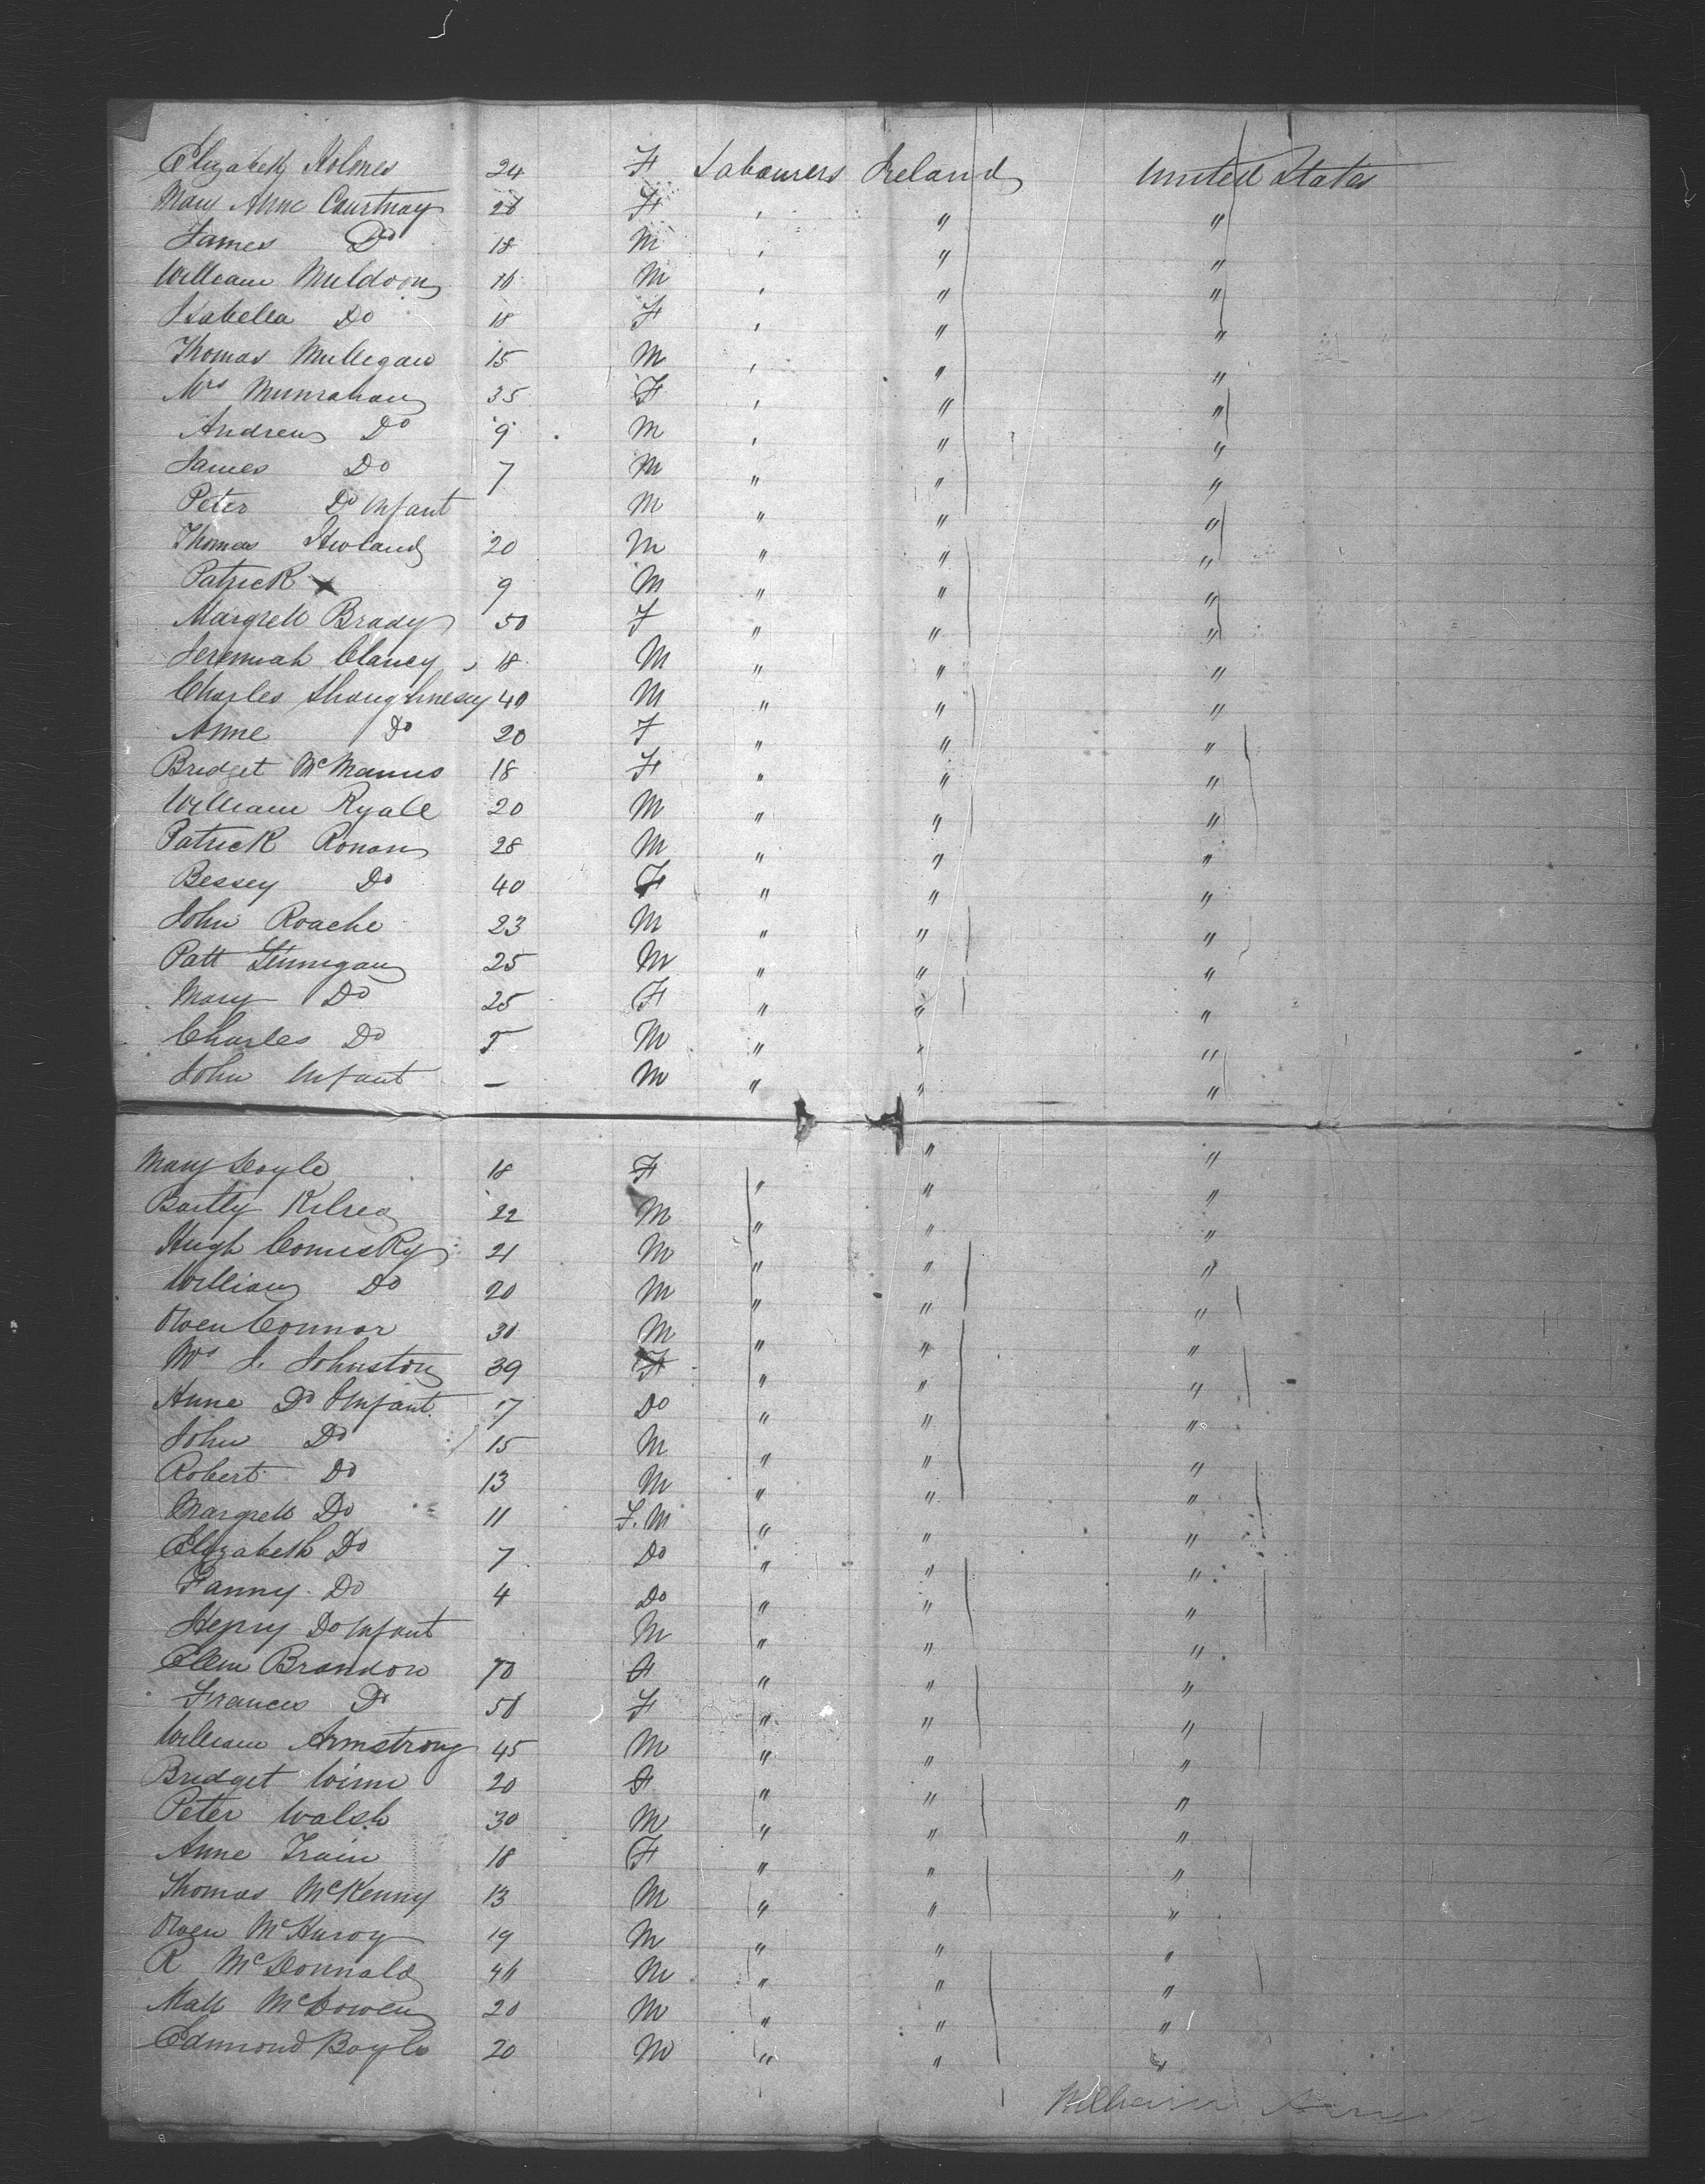 Elizabeth Holmes 24 F Labourers Ireland United States
Mary Anne Courtnay 20 F , " "
James Do 18 M , " "
William Muldoon 16 M , " "
Isabella Do 18 F , " "
Thomas Mulligan 15 M , " "
Mrs Munrahan 35 F , " "
Andrew Do 9 M , " "
James Do 7 M " " "
Peter Do Infant M " " "
Thomas Howland 20 M " " "
Patrick 9 M " " "
Margrett Brady 50 F " " "
Jeremiah Clancy 18 M " " "
Charles Shaughnessy 40 M " " "
Anne Do 20 F " " "
Bridget McManus 18 F " " "
William Ryall 20 M " " "
Patrick Ronan 28 M " " "
Bessey Do 40 F " " "
John Roache 23 M " " "
Patt Finnegan 25 M " " "
Mary Do 25 F " " "
Charles Do 5 M " " "
John Infant – M " " "
Mary Doyle 18 F " " "
Bartly Kilrea 22 M " " "
Hugh Comisky 21 M " " "
William Do 20 M " " "
Owen Connor 30 M " " "
Mrs J. Johnston 39 F " " "
Anne Do Infant 17 Do " " "
John Do 15 M " " "
Robert Do 13 M " " "
Margrett Do 11 F.M " " "
Elizabeth Do 7 Do " " "
Fanny Do 4 Do " " "
Henry Do Infant M " " "
Ellen Brandon 70 F " " "
Frances Do 50 F " " "
William Armstrong 45 M " " "
Bridget Winn 20 F " " "
Peter Walsh 30 M " " "
Anne Train 18 F " " "
Thomas McKenny 13 M " " "
Owen 19 M " " "
R McDonnald 46 M " " "
Matt McGowen 20 M " " "
Edmond Boyle 20 M " " "
William